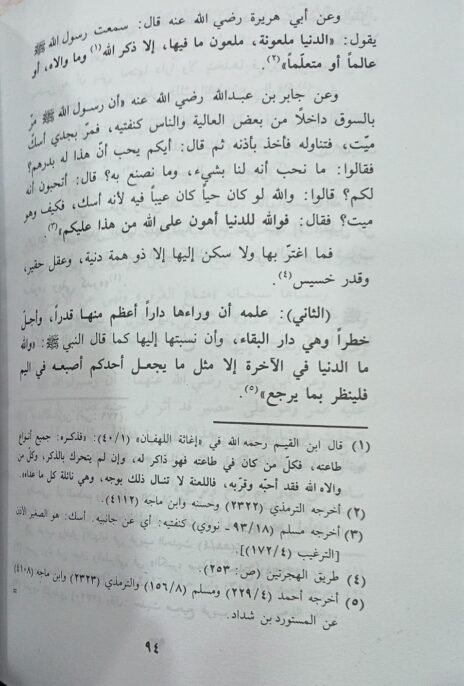 وعن أبي هريرة رضي الله عنه قال: سمعت رسول الله ﷺ
يقول: «الدنيا ملعونة، ملعون ما فيها، إلا ذكر الله(١) وما والاه، أو
عالماً أو متعلّماً»(٢).
وعن جابر بن عبدالله رضي الله عنه «أن رسول الله ﷺ مرّ
بالسوق داخلًا من بعض العالية والناس كنفتيه، فمرّ بجدي أسكّ
ميّت، فتناوله فأخذ بأذنه ثم قال: أيكم يحب أنّ هذا له بدرهم؟
فقالوا: ما نحب أنه لنا بشيء، وما نصنع به؟ قال: أتحبون أنه
لكم؟ قالوا: والله لو كان حياً كان عيباً فيه لأنه أسك، فكيف وهو
ميت؟ فقال: فوالله للدنيا أهون على الله من هذا عليكم»(٣).
فما اغترّ بها ولا سكن إليها إلا ذو همة دنية، وعقل حقير،
وقدر خسيس(٤).
(الثاني): علمه أن وراءها داراً أعظم منها قدراً، وأجلّ
خطراً وهي دار البقاء، وأن نسبتها إليها كما قال النبي ﷺ: «والله
ما الدنيا في الآخرة إلا مثل ما يجعل أحدكم أصبعه في اليم
فلينظر بما يرجع»(٥).
(١) قال ابن القيم رحمه الله في «إغاثة اللهفان» (٤٠/١): «فذكره: جميع أنواع
طاعته، فكلّ من كان في طاعته فهو ذاكر له، وإن لم يتحرك بالذكر، وكلّ من
والاه الله فقد أحبّه وقرّبه، فاللعنة لا تنال ذلك بوجه، وهي نائلة كل ما عداه».
(٢) أخرجه الترمذي (٢٣٢٢) وحسنه وابن ماجه (٤١١٢).
(٣) أخرجه مسلم (٩٣/١٨- نووي) كنفتيه: أي عن جانبيه. أسك: هو الصغير الأذن
[الترغيب (١٧٢/٤)].
(٤) طريق الهجرتين (ص: ٢٥٣).
(٥) أخرجه أحمد (٢٢٩/٤) ومسلم (١٥٦/٨) والترمذي (٢٣٢٣) وابن ماجه (٤١٠٨)
عن المستورد بن شداد. =
٩٤